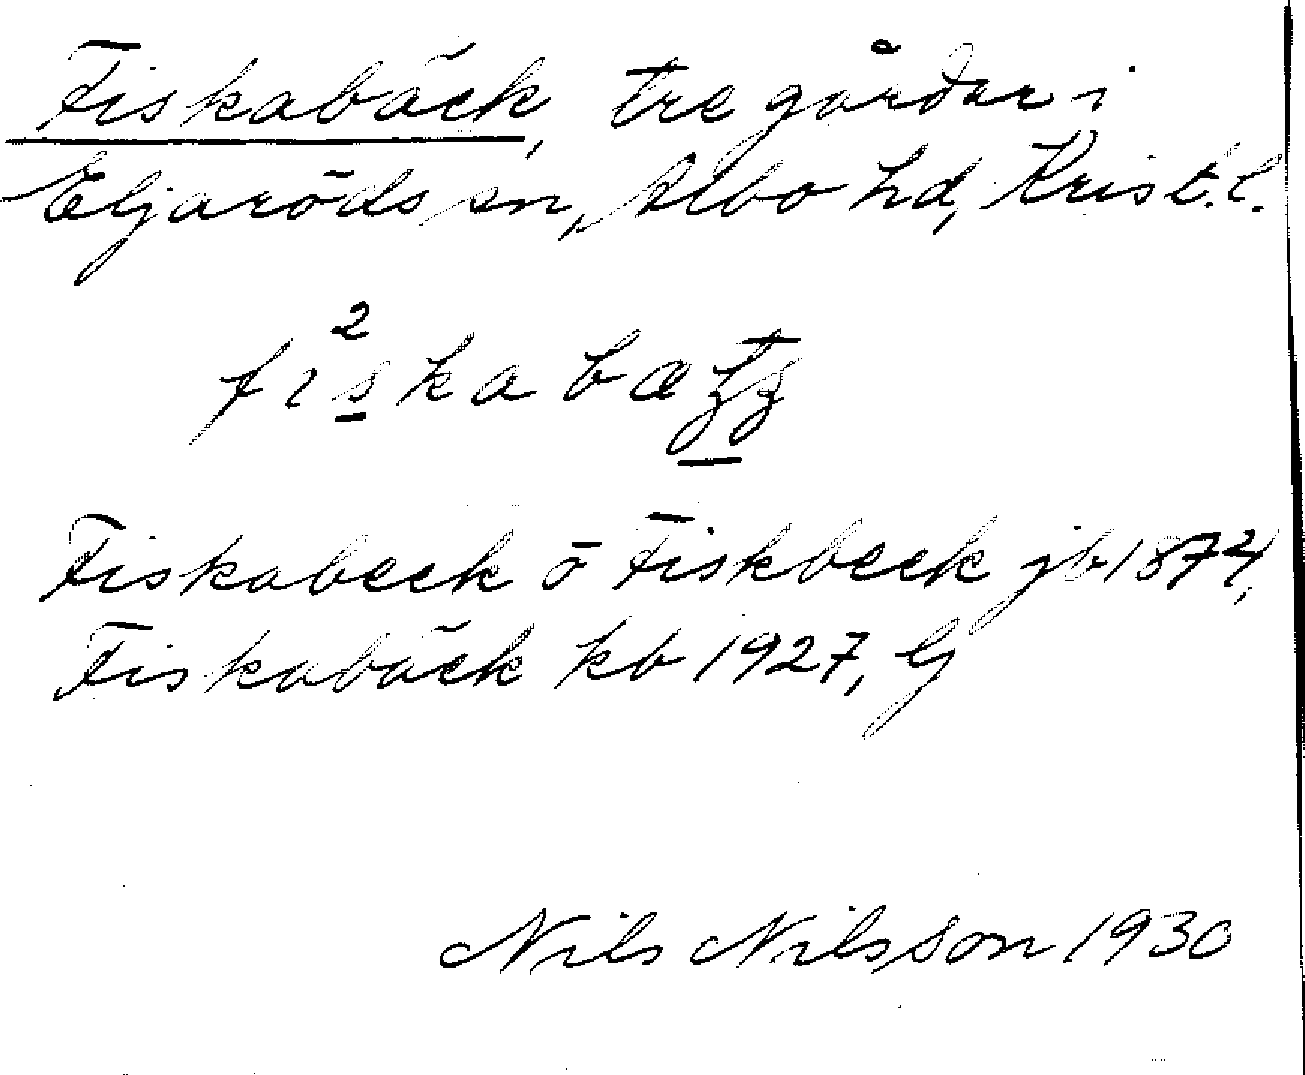 Fiskabäck, tre gårdar i
Eljaröds sn, Albo hd, Krist. l.
Fiskabeck o Fiskbeck jb 1874,
Fiskabäck kb 1927, G
Nils Nilsson 1930